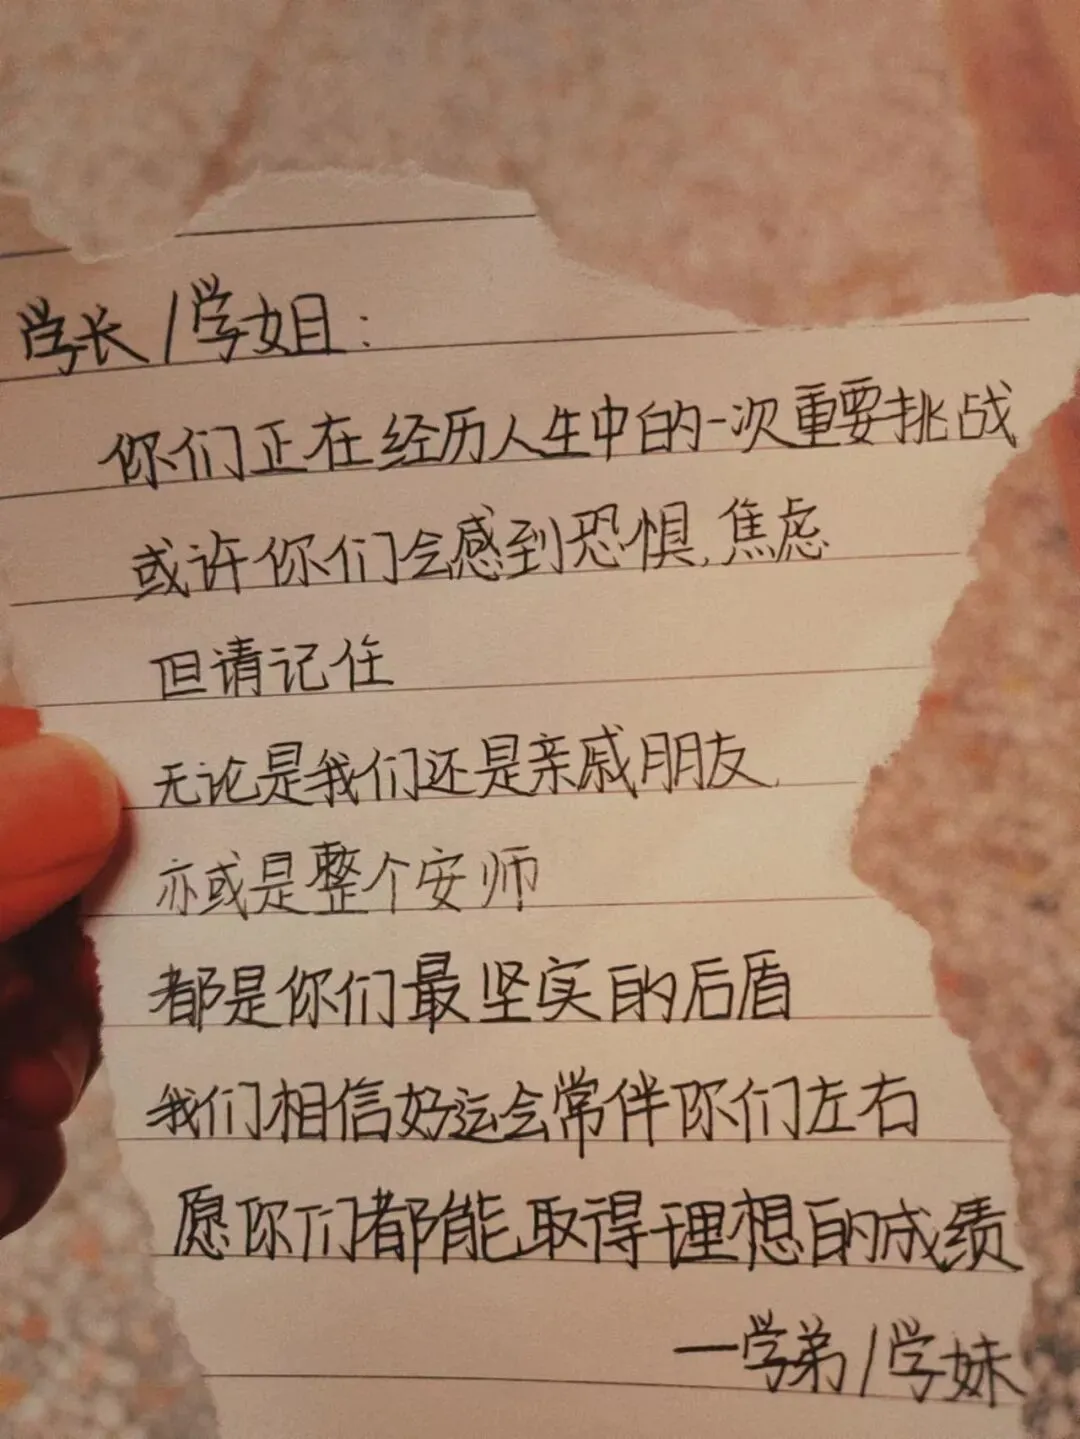 学长/学姐：
你们正在经历人生中的一次重要挑战
或许你们会感到恐惧,焦虑
但请记住
无论是我们还是亲戚朋友,
亦或是整个安师
都是你们最坚实的后盾
我们相信好运会常伴你们左右
愿你们都能取得理想的成绩
—学弟/学妹